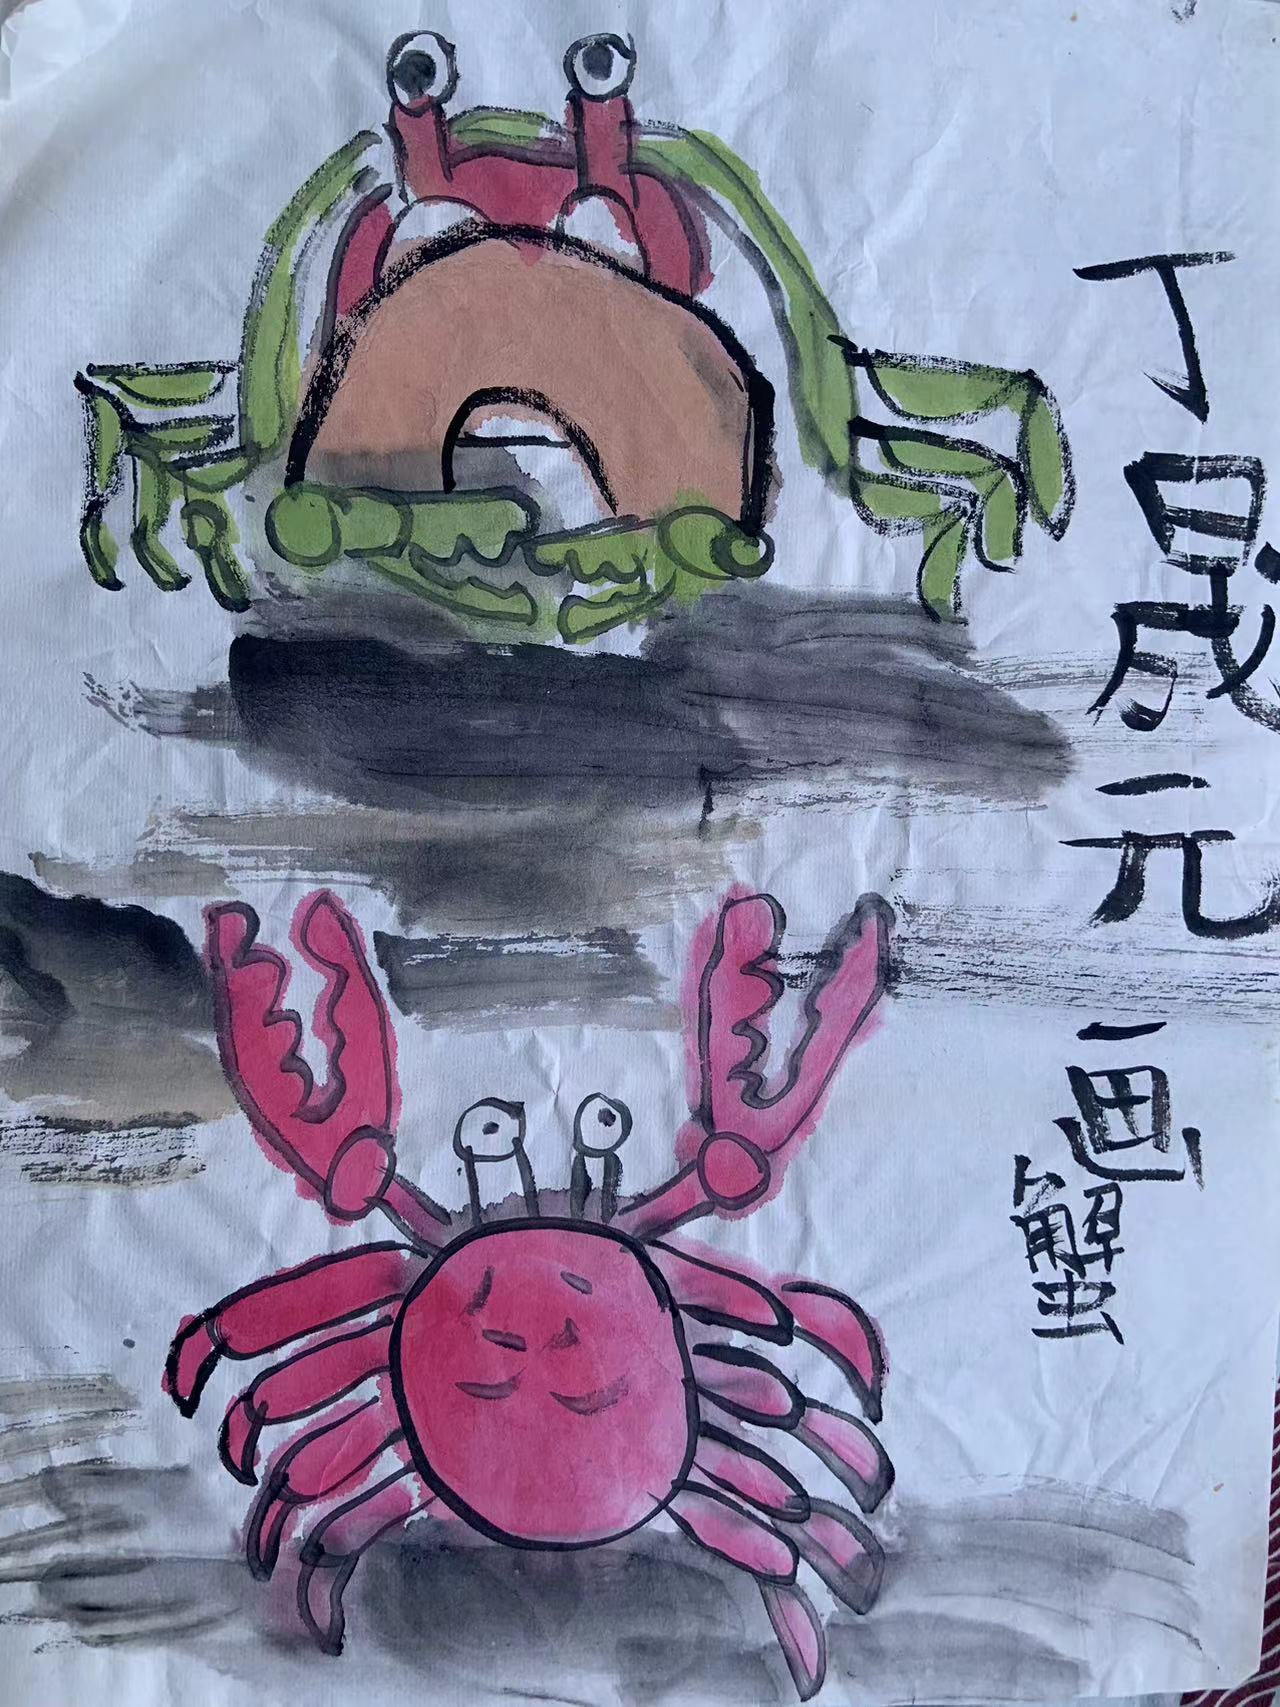 丁晟元
画蟹